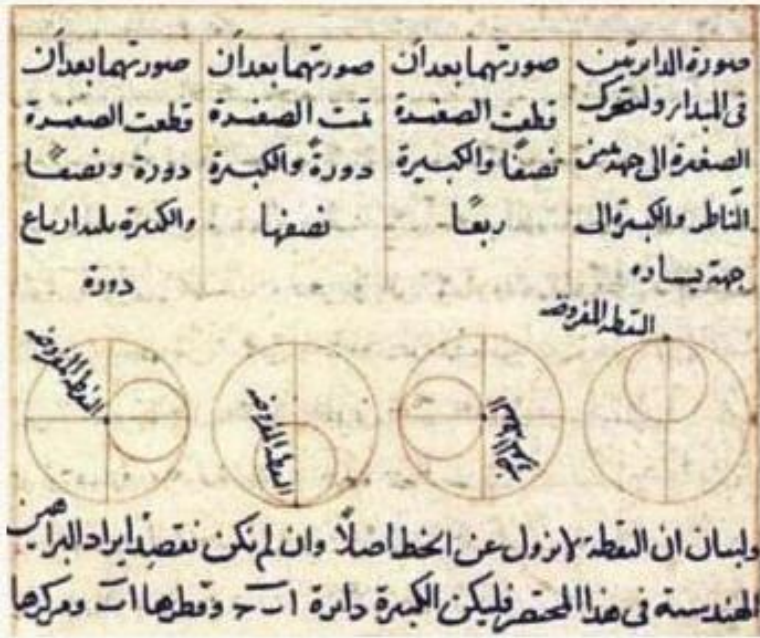 صورة الدايرتين
فى المبدا ولتتحرك
الصغيرة الى جهة يمين
الناظر والكبيرة الى
جهة يساره
صورتهما بعد ان
قطعت الصغيرة
نصفًا والكبيرة
ربعًا
صورتهما بعد ان
تمت الصغيرة
دورةً والكبيرة
نصفها
صورتهما بعد ان
قطعت الصغيرة
دورة ونصفًا
والكبيرة ثلثة ارباع
دورة
النقطة المفروضة
النقطة المفروضة
النقطة المفروضة
ولبيان ان النقطة لا تزول عن الخط اصلًا وان لم نكن نقصد ايراد البراهين
الهندسية فى هذا المختصر فليكن الكبيرة دائرة ا ب ح وقطرها ا ب ومركزها